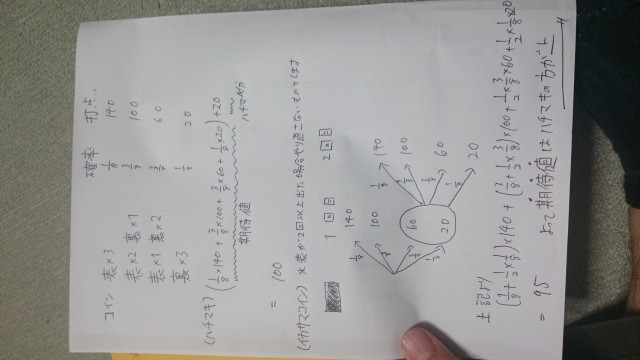 コイン 確率 打点..
表×3 1/8 140
表×2 裏×1 3/8 100
表×1 裏×2 3/8 60
裏×3 1/8 20
(ハチマキ) (1/8×140 + 3/8×100 + 3/8×60 + 1/8×20) +20
期待値 ハチマキ分
= 100
(イカサマコイン) ※表が2回以上出た場合やり直さないものとします
1回目 2回目
140
100
60
20
1/8
3/8
1/2
140
100
60
20
1/8
3/8
3/8
1/8
上記より
(1/8+1/2×1/8)×140 + (3/8+1/2×3/8)×100 + 1/2×3/8×60 + 1/2×1/8×20
= 95 よって期待値はハチマキの方が上